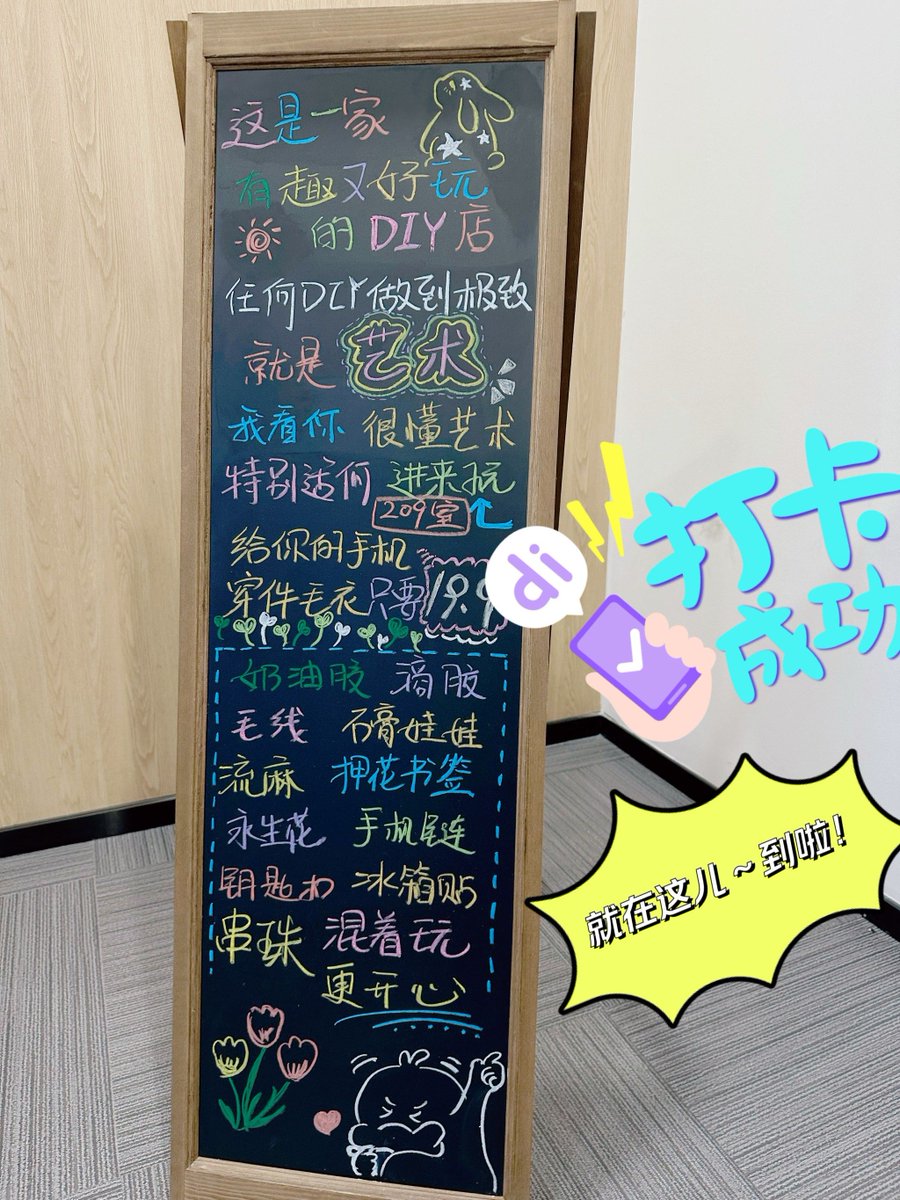 这是一家
有趣又好玩
的DIY店
任何DIY做到极致
就是艺术
我看你 很懂艺术
特别适何 进来玩
209室
给你的手机
穿件毛衣只要19.9
奶油胶 滴胶
毛线 石膏娃娃
流麻 押花书签
永生花 手机链
钥匙扣 冰箱贴
串珠 混着玩
更开心
di
打卡
成功
就在这儿~到啦!